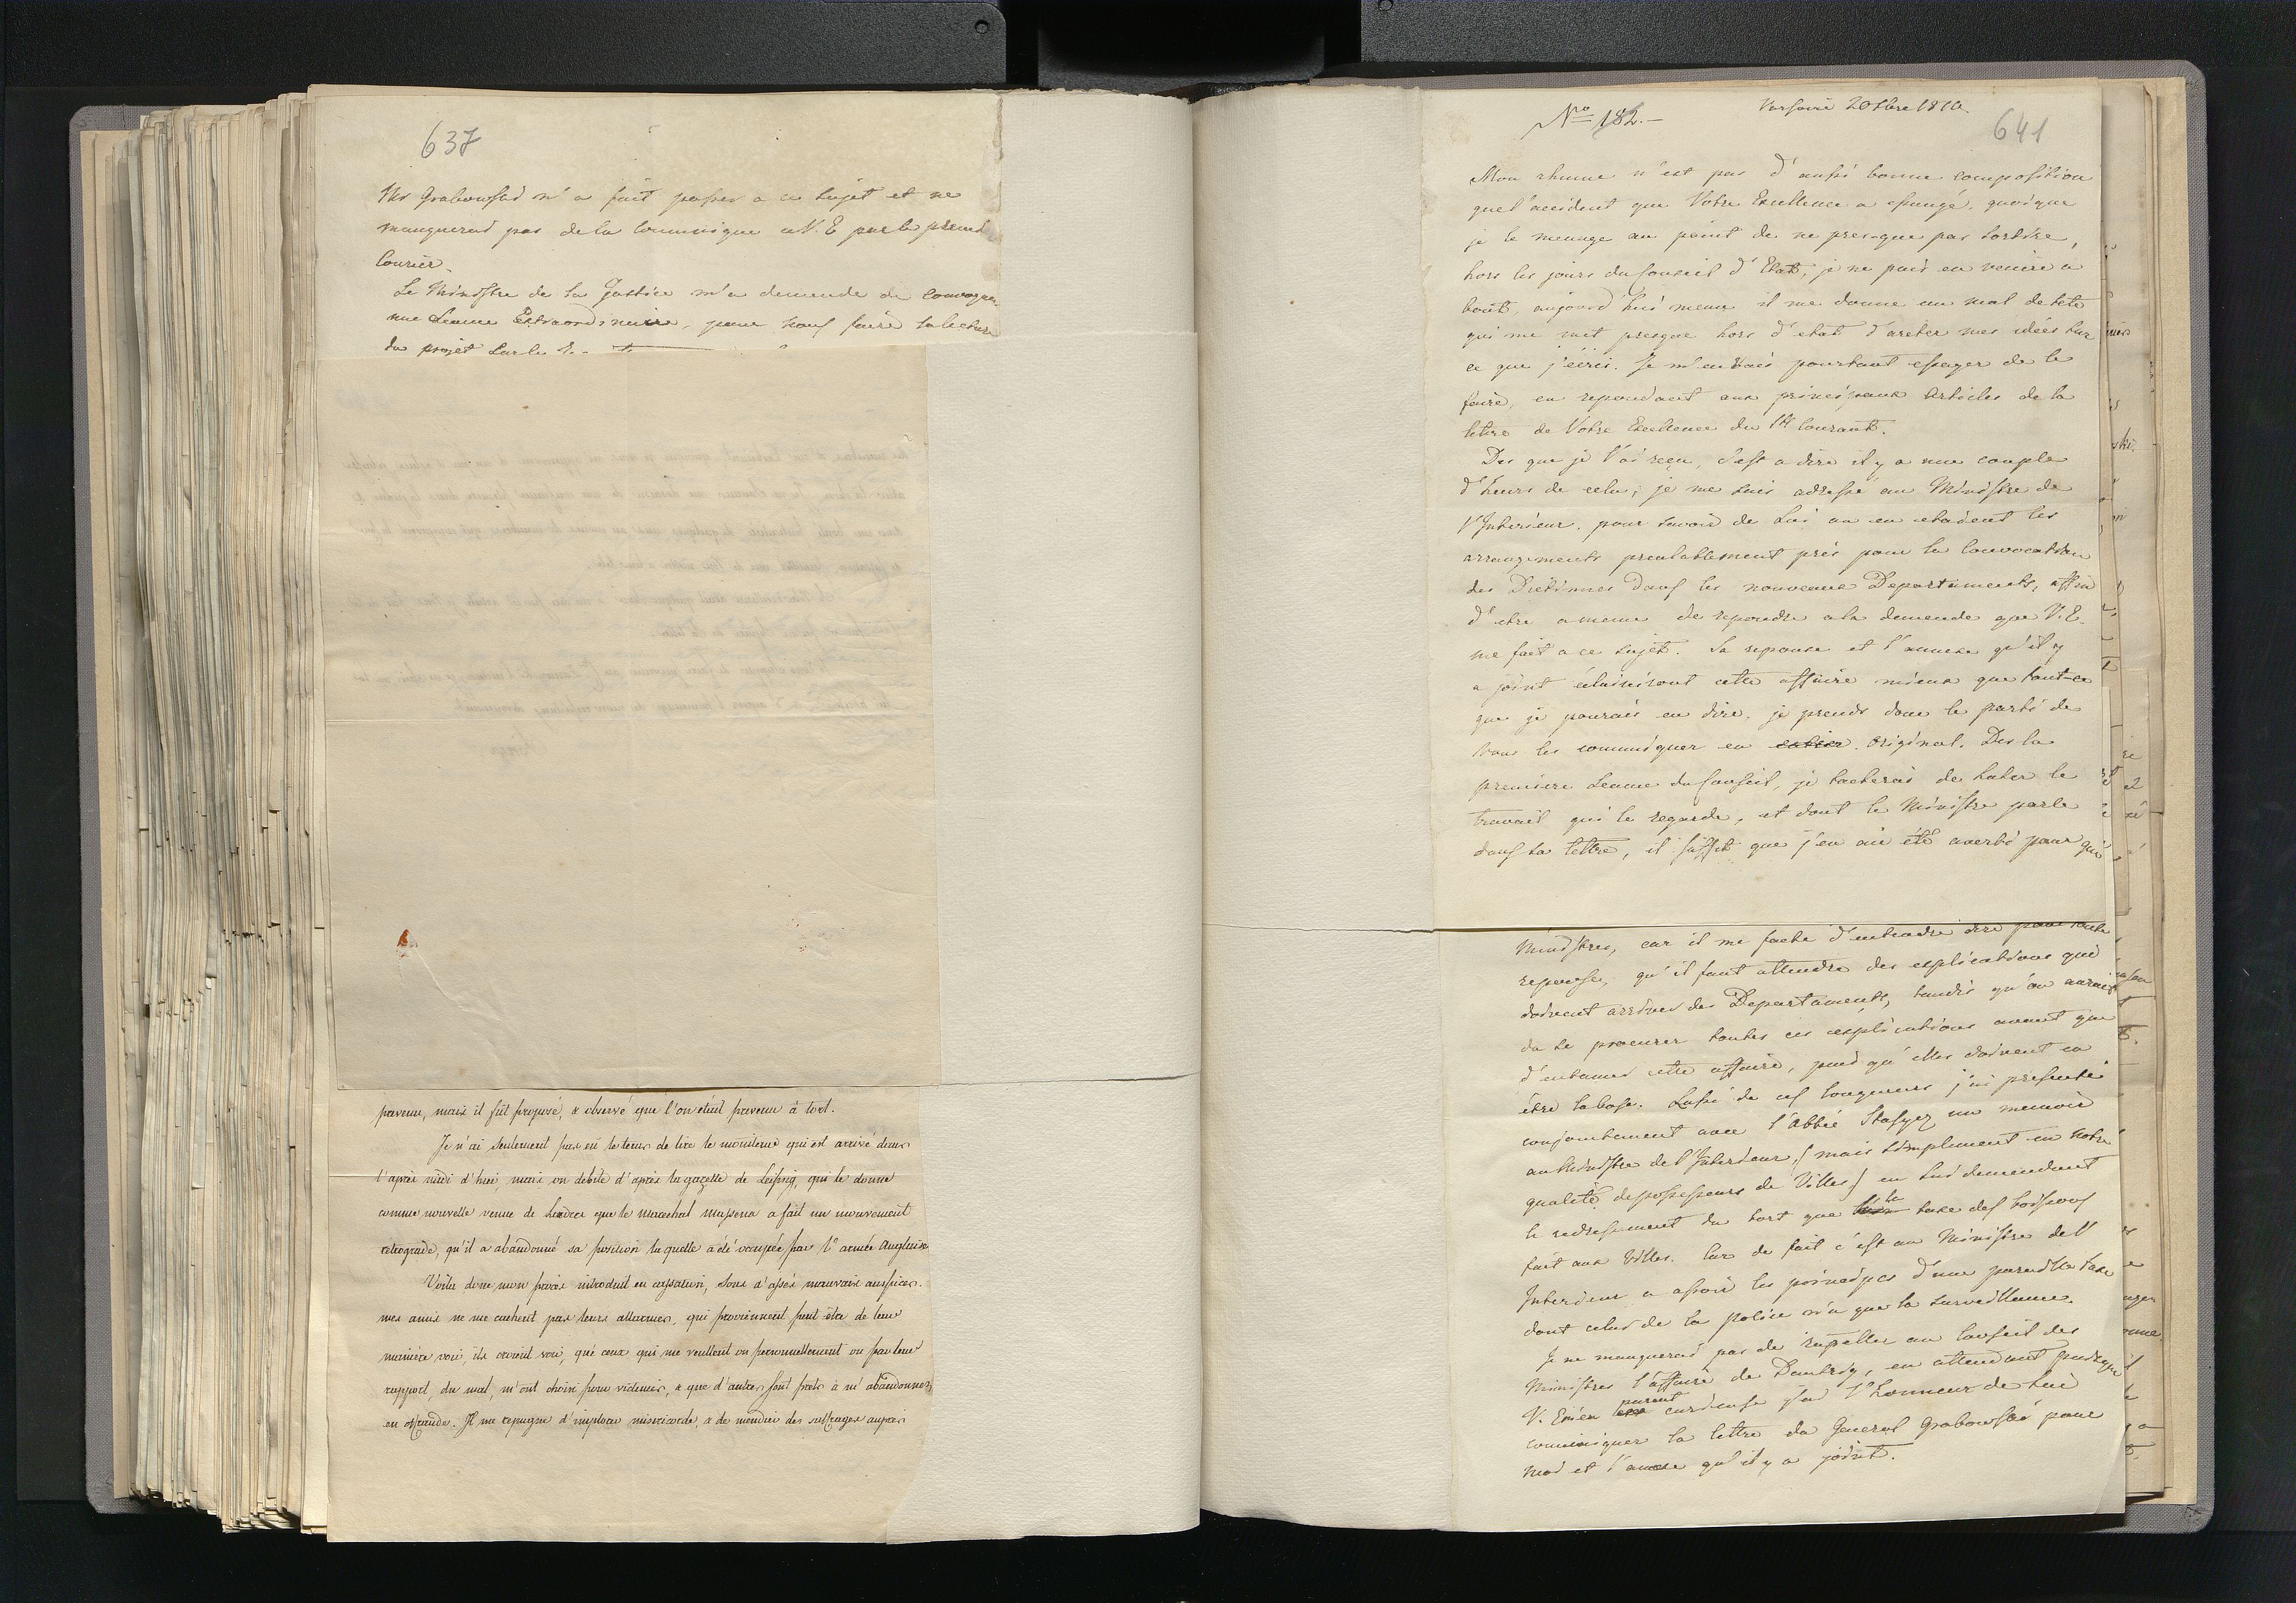 637
Mr Grabowski m'a fait passer a ce sujet et ne
manquerai pas de la communiquer a V. E par le premier
Courier.
Le Ministre de la Justice m'a demende de Convoquer
une Seance Extraordinaire, pour nous faire la lecture
du projet sur le
parvenu, mais il fut proposé, & observé que l'on etait parvenu à tort.
Je n'ai seulement pas eû le tems de lire le moniteur qui est arrivé dans
l'après midi d'hier, mais on debite d'après la gazette de Leipsig, qui le donne
comme nouvelle venue de Londres que le Marechal Massena a fait un mouvement
retrograde, qu'il a abandonné sa position laquelle a été occupée par l'armée Anglaise
Voila donc mon procès introduit en cassation, sous d'assés mauvais auspices.
mes amis ne me cachent pas leurs allarmes, qui proviennent peut être de leur
manière voir, ils croient voir, que ceux qui me veullent ou personnellement ou par leur
rapport, du mal, m'ont choisi pour victime, & que d'autres sont prets à m'abandonner
en offrande. Il me repugne d'implorer misericorde, & de mendier des suffrages auprès
No 182.-
Varsovie 20 Xbre 1810.
641
Mon rhume n'est pas d'aussi bonne composition
que l'accident que Votre Excellence a epungé, quoique
je le menage au point de ne presque pas sortire,
hors les jours du Conseil d'Etat, je ne puis en venire a
bout, aujourd'hui meme il me donne un mal de tete
qui me met presque hors d'etat d'areter mes idées sur
ce que j'ecris. Je m'en vais pourtant essayer de le
faire, en repondant aux principaux Articles de la
lettre de Votre Excellence du 14 Courant.
Des que je l'ai reçu, c'est a dire il y a une couple
d'heurs de cela, je me suis adressé au Ministre de
l'Interieur, pour savoir de Lui ou en etaient les
arrangements prealablement pris pour la Convocation
des Dietinnes dans les nouveaux Departements, affin
d'etre a meme de repondre a la demende que V. E.
me fait a ce sujet. Sa reponse et l'annexe qu'il y
a joint éclairciront cette affaire mieux que tout-ce
que je pourais en dire, je prends donc le parti de
vous les communiquer en original. Des la
premiere Seance du Conseil, je tacherai de hater le
travail qui le regarde, et dont le Ministre parle
dans sa lettre, il suffit que j'en aie été averti pour que
Ministres, car il me fache d'entendre dire pour toute
reponse, qu'il faut attendre des explications qui
doivent arriver des Departaments, tandis qu'on aurait
du se procurer toutes ces explications avant que
d'entamer cette affaire, puis qu'elles doivent en
être la base. Lassé de ces longueurs j'ai presenté
conjointement avec l'Abbé Staszyc un memoir
au Ministre de l'Interieur, (mais simplement en notre
qualité de possesseurs de Villes) en lui demendant
le redressement du tort que la taxe des boissons
fait aux Villes. Car de fait c'est au Ministre de l'
Interieur a assoir les principes d'une pareille taxe
dont celui de la police n'a que la surveillance.
Je ne manquerai pas de rapeller au Conseil des
Ministres l'affaire de Dantzig, en attendant puisque
V. E. m'en parait curieuse j'ai l'honneur de Lui
communiquer la lettre du General Grabowski pour
moi et l'annexe qu'il y a joint.